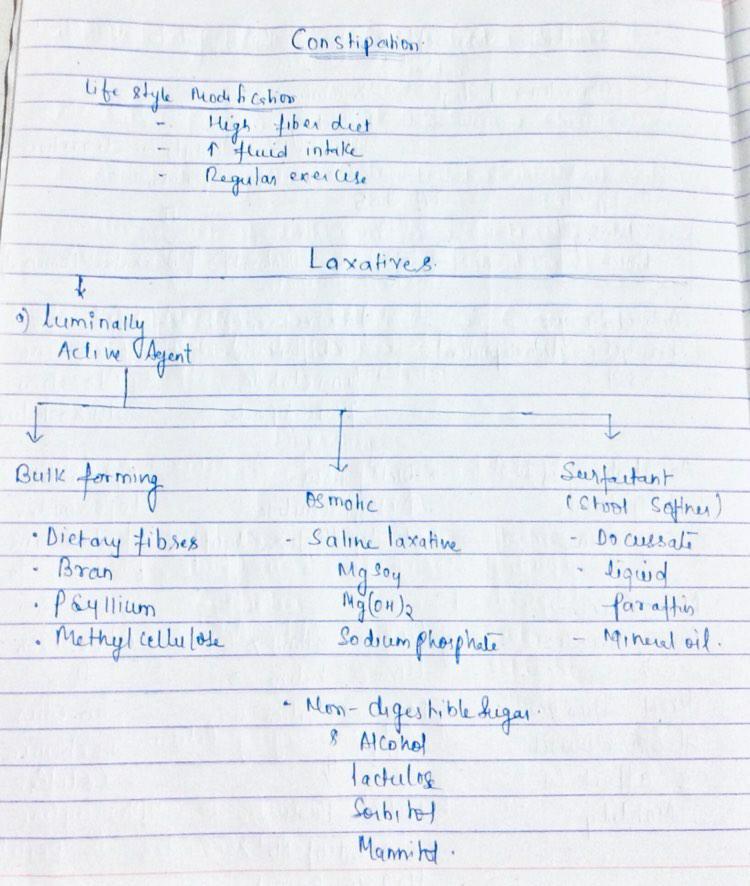 Constipation.
Life style Modification
- High fiber diet
- ↑ fluid intake
- Regular exercise
Laxatives.
a) Luminally
Active Agent
Bulk forming
• Dietary fibres
• Bran
• Psyllium
• Methyl cellulose
Osmotic
- Saline laxative
MgSO4
Mg(OH)2
Sodium phosphate
• Non-digestible Sugar.
& Alcohol
lactulose
Sorbitol
Mannitol.
Surfactant
(Stool Softner)
- Docussate
- liquid
paraffin
- Mineral oil.